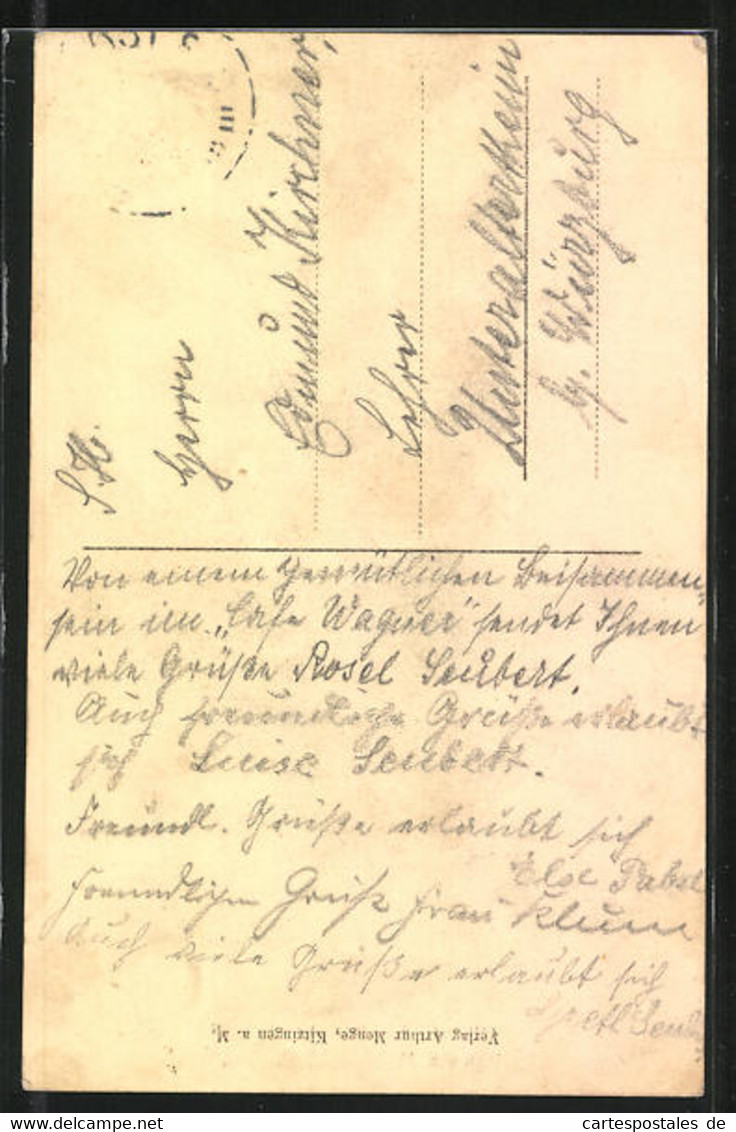 S. H.
Herrn
Edmund Kirchner,
Lehrer
Unteraltertheim
b. Würzburg
Von einem gemütlichen Beisammen-
sein im „Cafe Wagner" sendet Ihnen
viele Grüße Rosel Seubert.
Auch freundliche Grüße erlaubt
sich Luise Seubert.
Freundl. Grüße erlaubt sich
Else Pabst
freundlichen Gruß Frau Klum
Auch viele Grüße erlaubt sich
Verlag Arthur Menge, Kitzingen a. M.
www.delcampe.net
cartespostales de